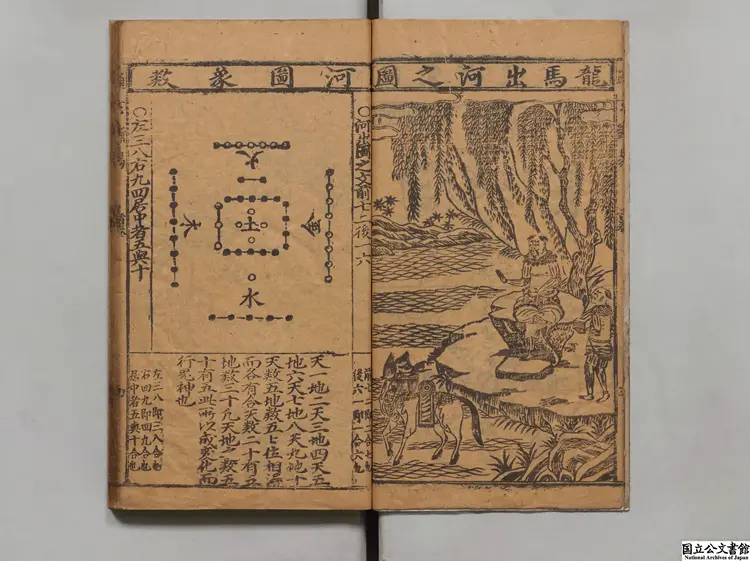 龍馬出河之圖
河圖象數
○河出圖之文前七二後一六
火
木
土
金
水
○左三八右九四居中者五與十
後六一即一合六也
天一地二天三地四天五
地六天七地八天九地十
天数五地数五〻位相得
而各有合天数二十有五
地数三十凡天地之数五
十有五此所以成变化而
行鬼神也
左三八即三八合也
右四九即四九合也
居中者五與十合也
国立公文書館
National Archives of Japan